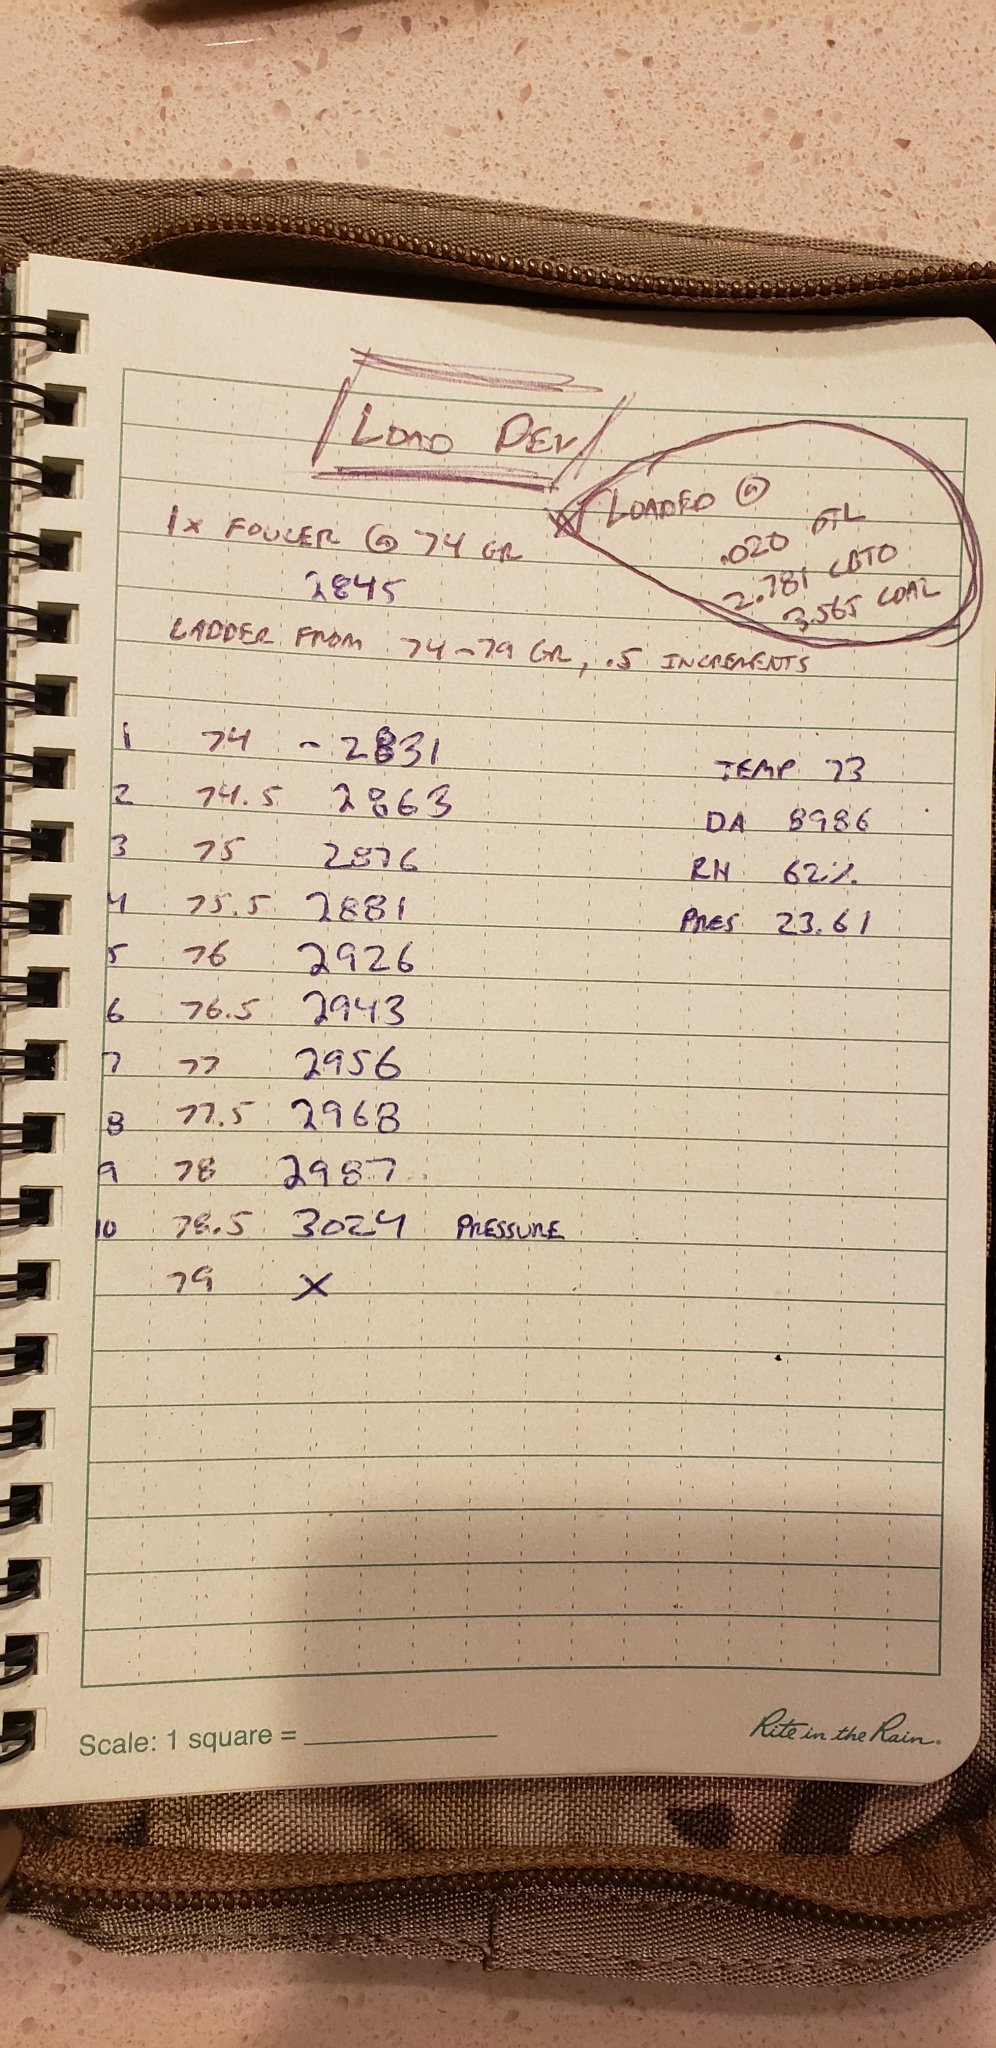 LOAD DEV
LOADED @
.020 OTL
2.781 CBTO
3.565 COAL
1x FOULER @ 74 GR
2845
LADDER FROM 74-79 GR, .5 INCREMENTS
1 74 - 2831
2 74.5 2863
3 75 2876
4 75.5 2881
5 76 2926
6 76.5 2943
7 77 2956
8 77.5 2968
9 78 2987
10 78.5 3024 PRESSURE
79 X
TEMP 73
DA 8986
RH 62%
PRES 23.61
Scale: 1 square = 
Rite in the Rain.